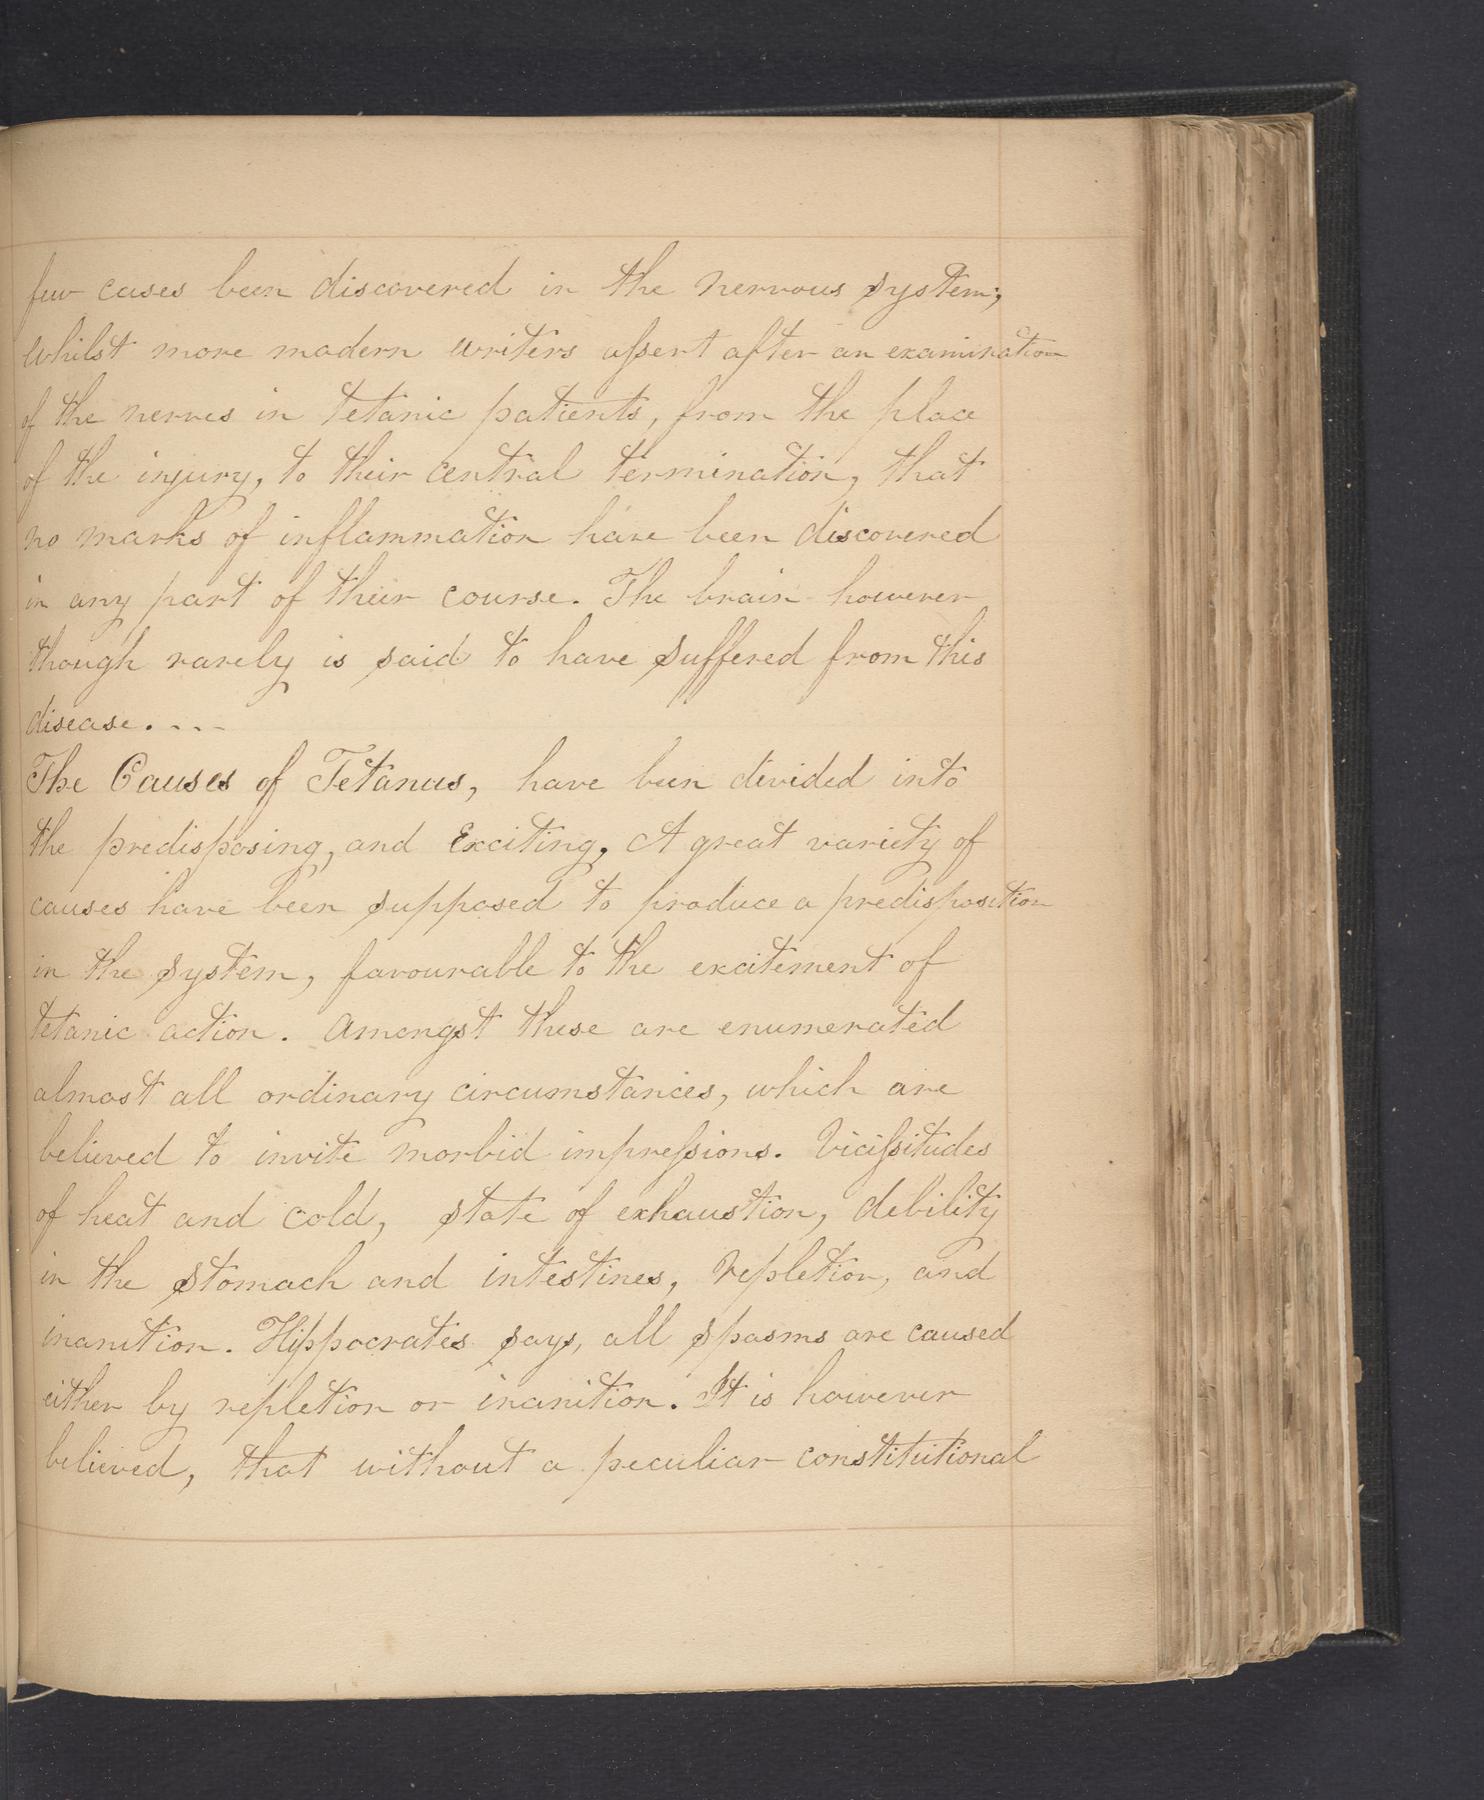 few cases been discovered in the nervous system;
whilst more modern writers aſsert after an examination
of the nerves in tetanic patients, from the place
of the injury, to their central termination, that
no marks of inflammation have been discovered
in any part of their course. The brain however
though rarely is said to have suffered from this
disease. - - -
The Causes of Tetanus, have been divided into
the predisposing, and Exciting. A great variety of
causes have been supposed to produce a predisposition
in the system, favourable to the excitement of
tetanic action. Amongst these are enumerated
almost all ordinary circumstances, which are
believed to invite morbid impreſsions. Viciſsitudes
of heat and cold, state of exhaustion, debility
in the stomach and intestines, repletion, and
inanition. Hippocrates says, all spasms are caused
either by repletion or inanition. It is however
believed, that without a peculiar constitutional